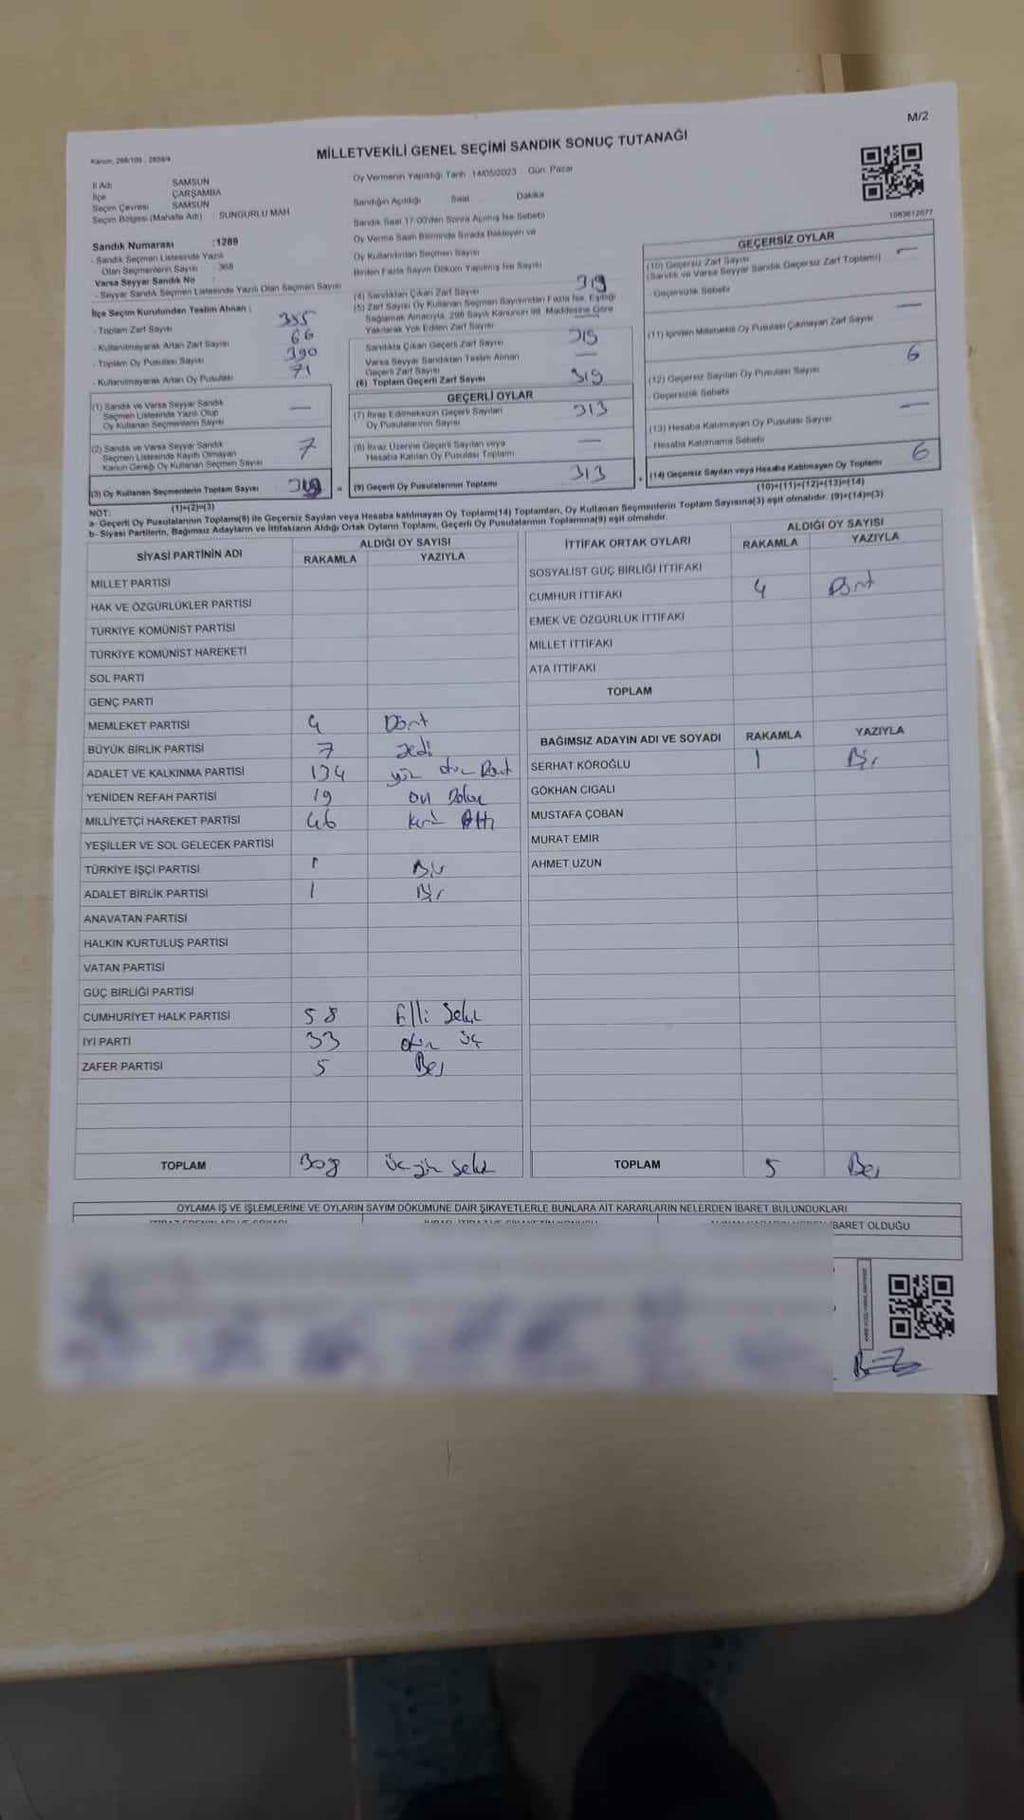 M/2
Kanun: 298/105 , 2839/4
MİLLETVEKİLİ GENEL SEÇİMİ SANDIK SONUÇ TUTANAĞI
İl Adı SAMSUN
İlçe ÇARŞAMBA
Seçim Çevresi SAMSUN
Seçim Bölgesi (Mahalle Adı) : SUNGURLU MAH
Sandık Numarası :1289
- Sandık Seçmen Listesinde Yazılı
Olan Seçmenlerin Sayısı : 368
Varsa Seyyar Sandık No
- Seyyar Sandık Seçmen Listesinde Yazılı Olan Seçmen Sayısı
İlçe Seçim Kurulundan Teslim Alınan :
- Toplam Zarf Sayısı 385
- Kullanılmayarak Artan Zarf Sayısı 66
- Toplam Oy Pusulası Sayısı 390
- Kullanılmayarak Artan Oy Pusulası 71
(1) Sandık ve Varsa Seyyar Sandık
Seçmen Listesinde Yazılı Olup
Oy Kullanan Seçmenlerin Sayısı —
(2) Sandık ve Varsa Seyyar Sandık
Seçmen Listesinde Kayıtlı Olmayan
Kanun Gereği Oy Kullanan Seçmen Sayısı 7
(3) Oy Kullanan Seçmenlerin Toplam Sayısı 319
(1)+(2)=(3)
Oy Vermenin Yapıldığı Tarih : 14/05/2023 Gün: Pazar
Sandığın Açıldığı Saat Dakika
Sandık Saat 17:00'den Sonra Açılmış İse Sebebi
Oy Verme Saati Bitiminde Sırada Bekleyen ve
Oy Kullandırılan Seçmen Sayısı
Birden Fazla Sayım Döküm Yapılmış İse Sayısı
(4) Sandıktan Çıkan Zarf Sayısı 319
(5) Zarf Sayısı Oy Kullanan Seçmen Sayısından Fazla İse, Eşitliği
Sağlamak Amacıyla, 298 Sayılı Kanunun 98. Maddesine Göre
Yakılarak Yok Edilen Zarf Sayısı —
Sandıkta Çıkan Geçerli Zarf Sayısı 319
Varsa Seyyar Sandıktan Teslim Alınan
Geçerli Zarf Sayısı —
(6) Toplam Geçerli Zarf Sayısı 319
GEÇERLİ OYLAR
(7) İtiraz Edilmeksizin Geçerli Sayılan
Oy Pusulalarının Sayısı 313
(8) İtiraz Üzerine Geçerli Sayılan veya
Hesaba Katılan Oy Pusulası Toplamı —
(9) Geçerli Oy Pusulalarının Toplamı 313
1083612677
GEÇERSİZ OYLAR
(10) Geçersiz Zarf Sayısı
(Sandık ve Varsa Seyyar Sandık Geçersiz Zarf Toplamı) —
Geçersizlik Sebebi
(11) İçinden Milletvekili Oy Pusulası Çıkmayan Zarf Sayısı —
(12) Geçersiz Sayılan Oy Pusulası Sayısı 6
Geçersizlik Sebebi
(13) Hesaba Katılmayan Oy Pusulası Sayısı —
Hesaba Katılmama Sebebi
(14) Geçersiz Sayılan veya Hesaba Katılmayan Oy Toplamı 6
(10)+(11)+(12)+(13)=(14)
NOT:
a- Geçerli Oy Pusulalarının Toplamı(9) ile Geçersiz Sayılan veya Hesaba katılmayan Oy Toplamı(14) Toplamları, Oy Kullanan Seçmenlerin Toplam Sayısına(3) eşit olmalıdır. (9)+(14)=(3)
b- Siyasi Partilerin, Bağımsız Adayların ve İttifakların Aldığı Ortak Oyların Toplamı, Geçerli Oy Pusulalarının Toplamına(9) eşit olmalıdır.
SİYASİ PARTİNİN ADI ALDIĞI OY SAYISI
RAKAMLA YAZIYLA
MİLLET PARTİSİ
HAK VE ÖZGÜRLÜKLER PARTİSİ
TÜRKİYE KOMÜNİST PARTİSİ
TÜRKİYE KOMÜNİST HAREKETİ
SOL PARTİ
GENÇ PARTİ
MEMLEKET PARTİSİ 4 Dört
BÜYÜK BİRLİK PARTİSİ 7 Yedi
ADALET VE KALKINMA PARTİSİ 134 yüz otuz Dört
YENİDEN REFAH PARTİSİ 19 on Dokuz
MİLLİYETÇİ HAREKET PARTİSİ 46 Kırk Altı
YEŞİLLER VE SOL GELECEK PARTİSİ
TÜRKİYE İŞÇİ PARTİSİ 1 Bir
ADALET BİRLİK PARTİSİ 1 Bir
ANAVATAN PARTİSİ
HALKIN KURTULUŞ PARTİSİ
VATAN PARTİSİ
GÜÇ BİRLİĞİ PARTİSİ
CUMHURİYET HALK PARTİSİ 58 Elli Sekiz
İYİ PARTİ 33 otuz üç
ZAFER PARTİSİ 5 Beş
TOPLAM 308 üç yüz sekiz
İTTİFAK ORTAK OYLARI ALDIĞI OY SAYISI
RAKAMLA YAZIYLA
SOSYALİST GÜÇ BİRLİĞİ İTTİFAKI
CUMHUR İTTİFAKI 4 Dört
EMEK VE ÖZGÜRLÜK İTTİFAKI
MİLLET İTTİFAKI
ATA İTTİFAKI
TOPLAM
BAĞIMSIZ ADAYIN ADI VE SOYADI RAKAMLA YAZIYLA
SERHAT KÖROĞLU 1 Bir
GÖKHAN CIGALI
MUSTAFA ÇOBAN
MURAT EMİR
AHMET UZUN
TOPLAM 5 Beş
OYLAMA İŞ VE İŞLEMLERİNE VE OYLARIN SAYIM DÖKÜMÜNE DAİR ŞİKAYETLERLE BUNLARA AİT KARARLARIN NELERDEN İBARET BULUNDUKLARI
İBARET OLDUĞU